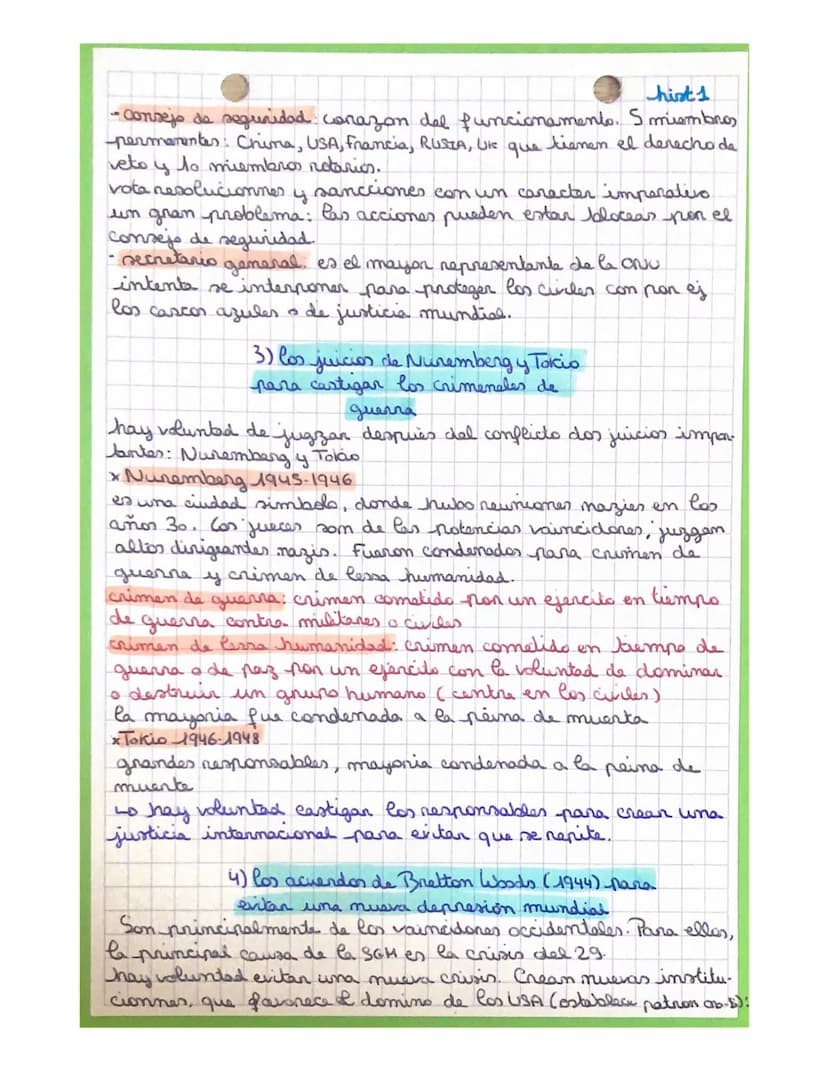 hist 1
- Consejo de seguridad: corazon del funcionamento. 5 miembros
permanentes: China, USA, Francia, RUSIA, UK que tienen el derecho de
veto y 10 miembros rotarios.
vota resoluciones y sancciones con un caracter imperativo
un gran problema: las acciones pueden estar bloceas por el
consejo de seguridad.
- secretario general: es el mayor representante de la ONU
intenta se interponer para proteger los civiles con por ej
los cascos azules o de justicia mundial.
3) los juicios de Nuremberg y Tokio
para castigar los crimenales de
guerra
hay voluntad de jugzar después del conflicto dos juicios impor-
tantes: Nuremberg y Tokio
x Nuremberg 1945-1946
es una ciudad simbolo, donde hubo reuniones nazies en los
años 30. Los jueces son de las potencias vaincidores, juzgan
altos dirigeandes nazis. Fueron condenados para crimen de
guerra y crimen de lessa humanidad.
crimen de guerra: crimen cometido por un ejercito en tiempo
de guerra contra militares o civiles
crimen de lessa humanidad: crimen cometido en tiempo de
guerra o de paz por un ejercito con la voluntad de dominar
o destruir un grupo humano (centra en los civiles)
la mayoria fue condenada a la peina de muerta
x Tokio 1946-1948
grandes responsables, mayoria condenada a la peina de
muerte
↳ hay voluntad castigar los responsables para crear una
justicia internacional para evitar que se repite.
4) los acuerdos de Bretton Woods (1944) para
evitar una nueva depresión mundial
Son principalmente de los vaincidores occidentales. Para ellos,
la principal causa de la SGM es la crisis del 29.
hay voluntad evitar una nueva crisis. Crean nuevas institu-
cionnes, que favorece el domino de los USA (establece patron or-$):